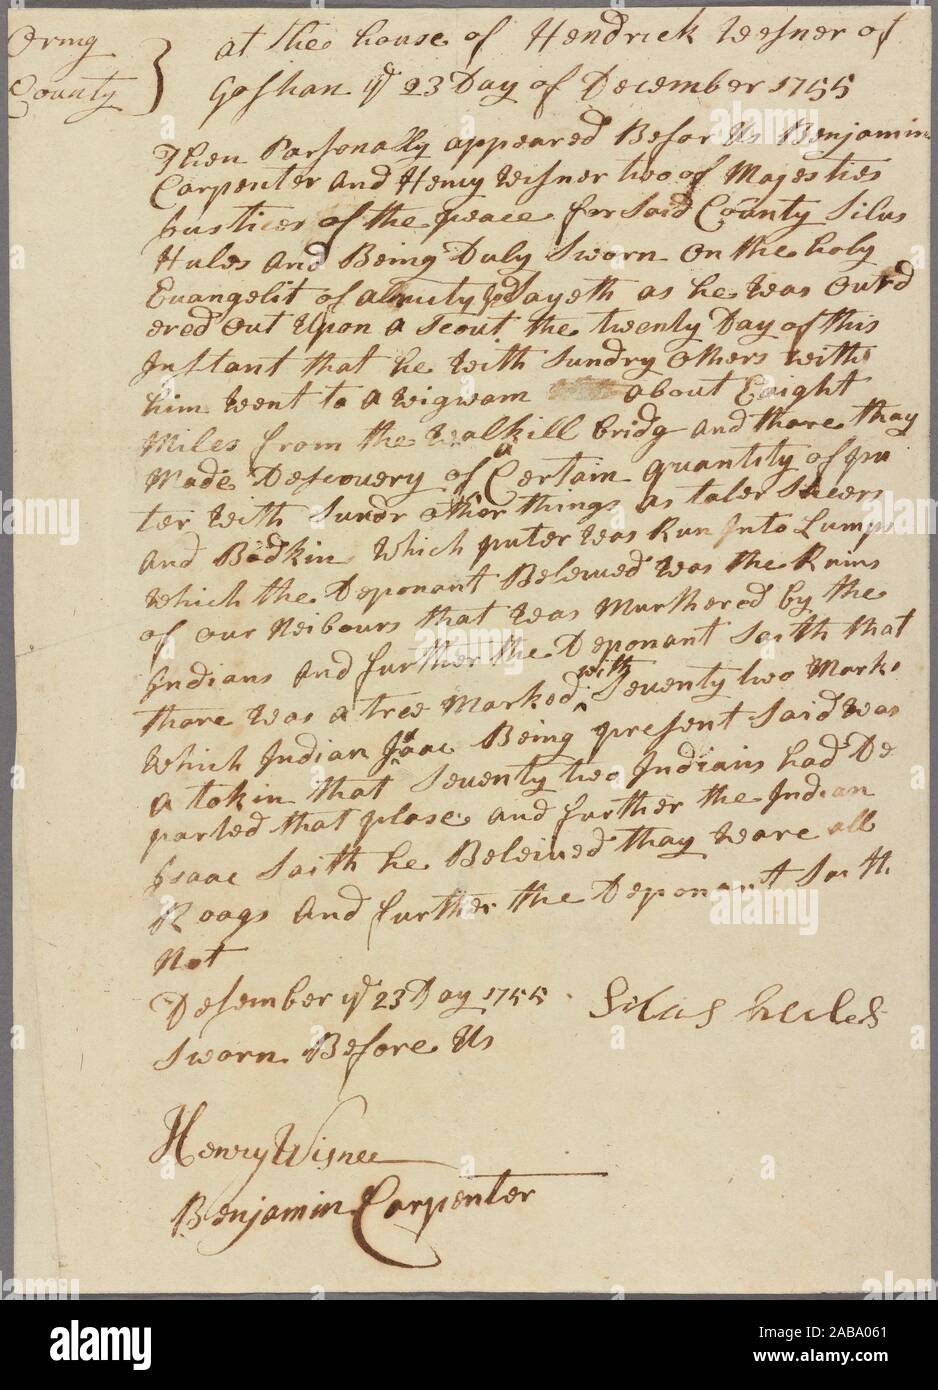 Orang County } at the house of Hendrick Wesner of
Goshan ye 23 Day of December 1755
Then Parsonally appeared Befor Us Benjamin
Carpenter and Henry Wisner two of Majesties
Justices of the peace for Said County Silus
Hules and Being Duly Sworn on the holy
Evangelit of Sayeth as he was ourd
ered out Upon a Scout the twenty Day of this
Instant that he with Sundry others with
him went to a wigwam about Eaight
Miles from the Walkill bridg and thare thay
Made Descovery of a Certain quantity of pu
ter with Sundr other things as taler Sheers
and Bodkin which puter was Run Into Lumps
which the Deponant Beleived was the Ruins
of our Neibours that was Murthered by the
Indians and further the Deponant Saith that
thare was a tree Marked with Seventy two Marks
which Indian Isaac Being present Said was
a tokin that Seventy two Indians had De
parted that plase and further the Indian
Isaac Saith he Beleived thay ware all
Roags and further the Deponant Saith
Not
Desember ye 23 Day 1755 Silas hules
Sworn Before Us
Henry Wisner
Benjamin Carpenter
alamy
Image ID: 2ABA061
www.alamy.com